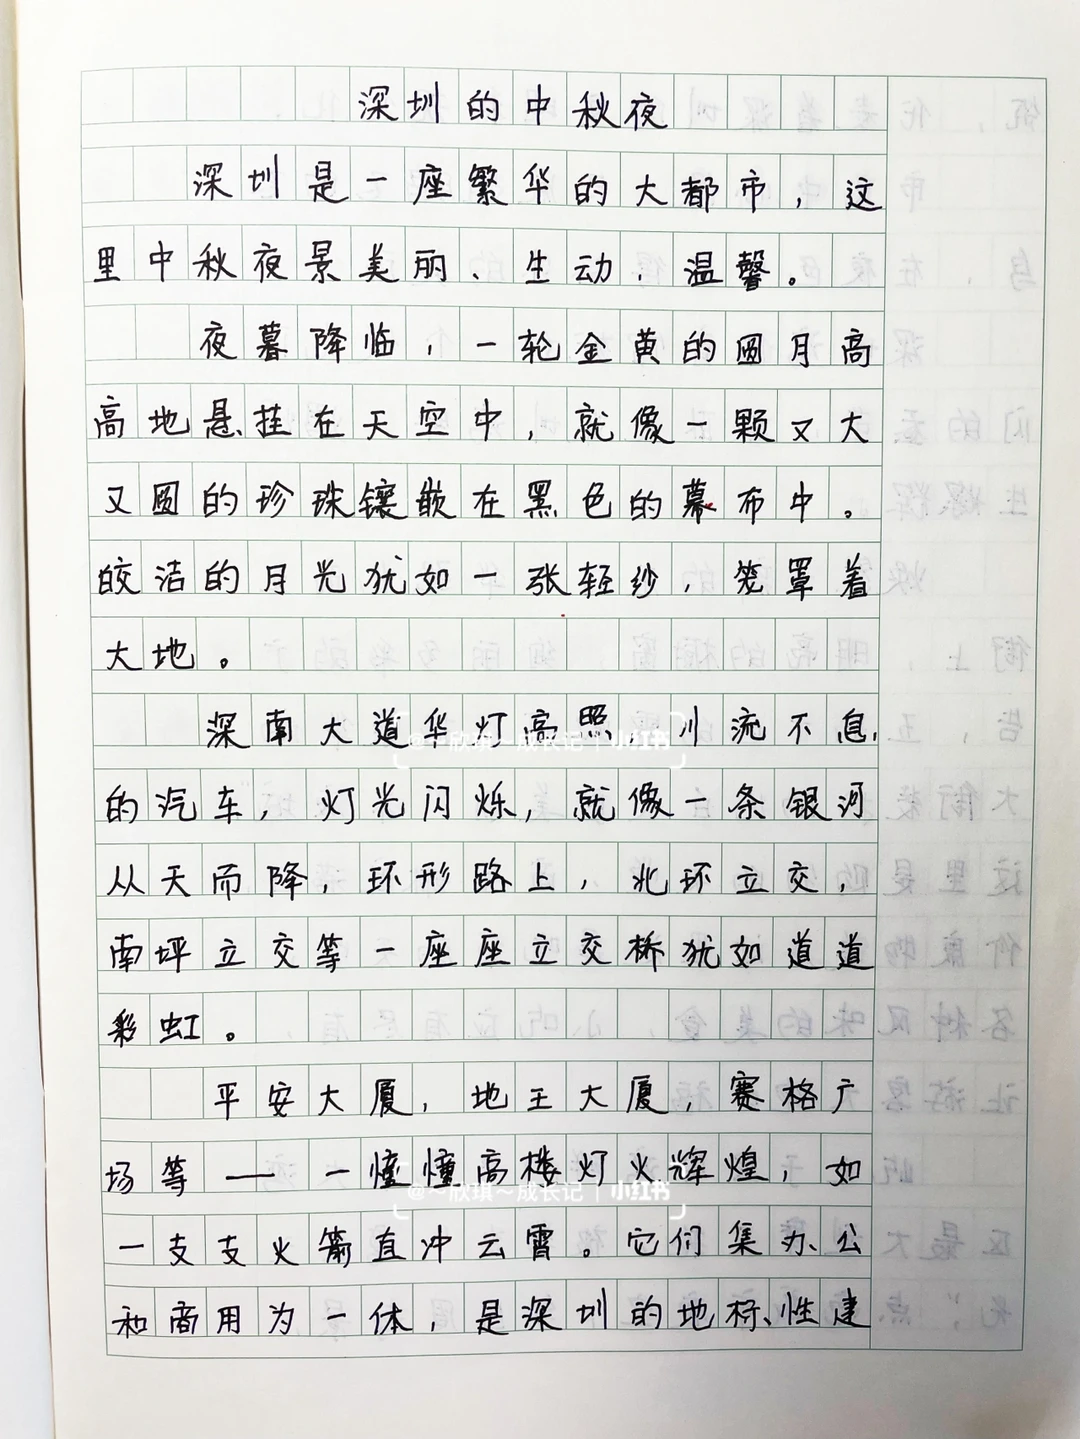 深圳的中秋夜
深圳是一座繁华的大都市，这
里中秋夜景美丽、生动、温馨。
夜暮降临，一轮金黄的圆月高
高地悬挂在天空中，就像一颗又大
又圆的珍珠镶嵌在黑色的幕布中。
皎洁的月光犹如一张轻纱，笼罩着
大地。
深南大道华灯高照，川流不息
的汽车，灯光闪烁，就像一条银河
从天而降，环形路上，北环立交，
南坪立交等一座座立交桥犹如道道
彩虹。
平安大厦，地王大厦，赛格广
场等——一幢幢高楼灯火辉煌，如
一支支火箭直冲云霄。它们集办公
和商用为一体，是深圳的地标性建
@～欣琪～成长记 | 小红书
@～欣琪～成长记 | 小红书